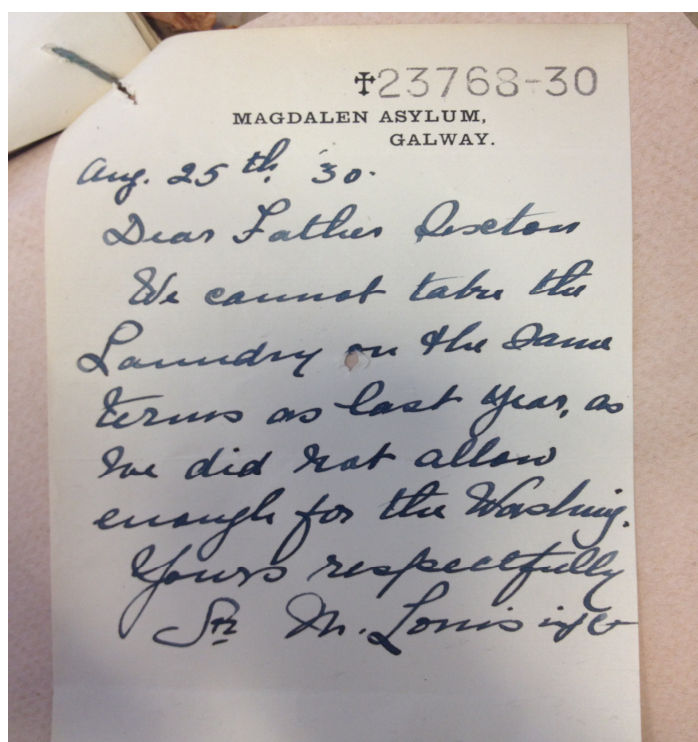 ✝23768-30
MAGDALEN ASYLUM,
GALWAY.
Aug. 25th. '30.
Dear Father Sexton
We cannot take the
Laundry on the same
terms as last year, as
we did not allow
enough for the Washing.
Yours respectfully
Sr M. Louis